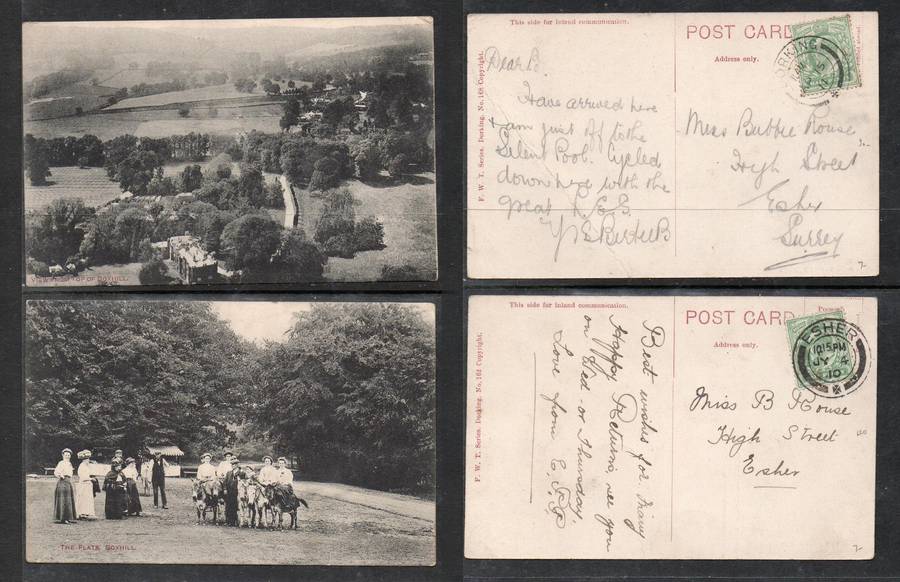 VIEW FROM TOP OF BOXHILL.
This side for inland communication.
POST CARD
Address only.
F. W. T. Series. Dorking. No. 168 Copyright.
DORKING
Dear B.
Have arrived here
& am just off to the
Silent Pool. Cycled
down here with the
great
Miss Babbie Rouse
High Street
Esher
Surrey
THE PLATE, BOXHILL.
This side for inland communication.
POST CARD
Address only.
F. W. T. Series. Dorking. No. 162 Copyright.
ESHER
10.15PM
JY 4
10
Best wishes for Many
Happy Returns, see you
on Wed - or Thursday.
Love from
Miss B Rouse
High Street
Esher